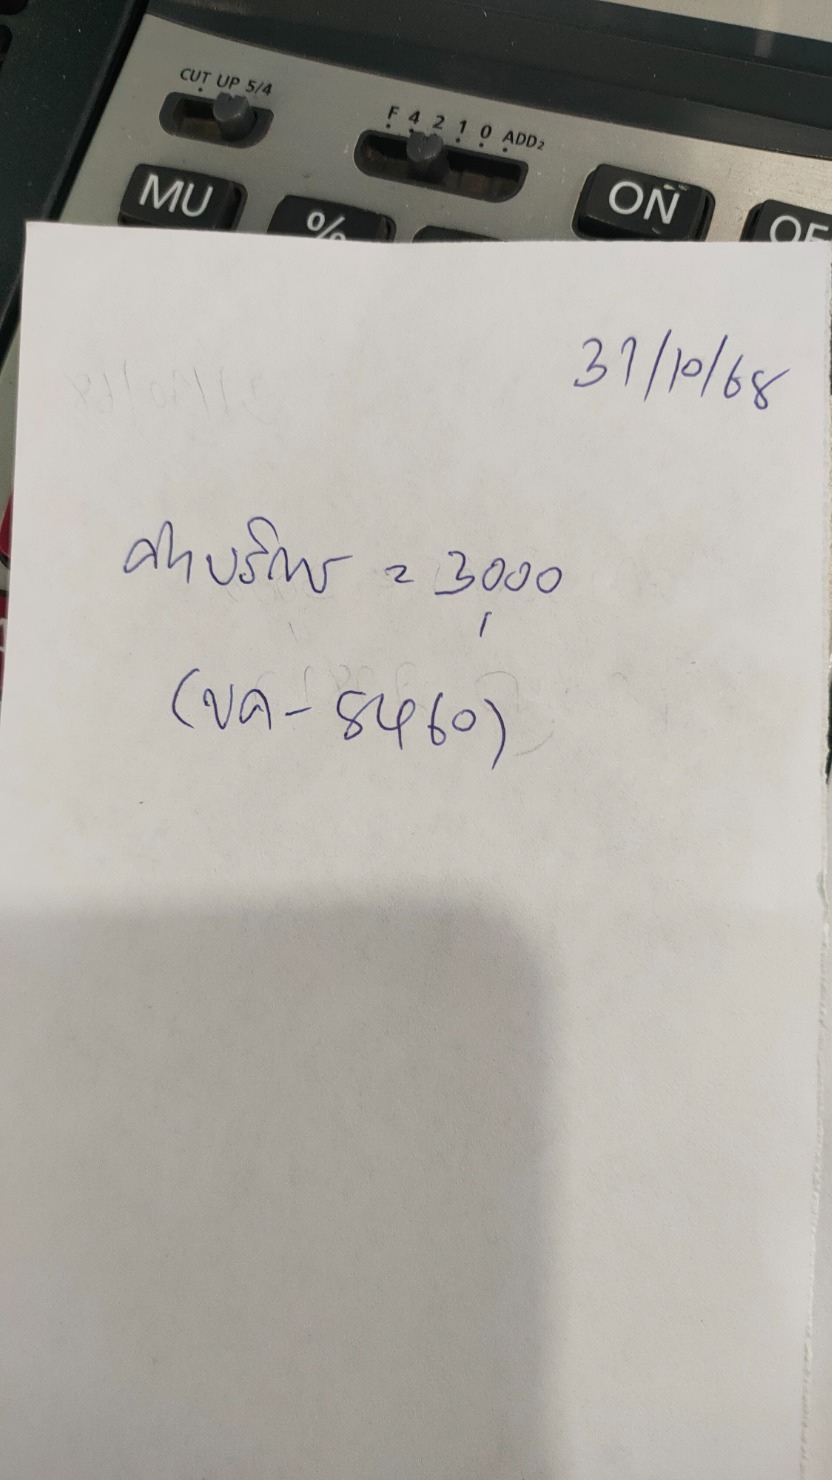 CUT UP 5/4
F 4 2 1 0 ADD₂
MU
%
ON
31/10/68
ค่าบริการ = 3000
(ขค-8460)